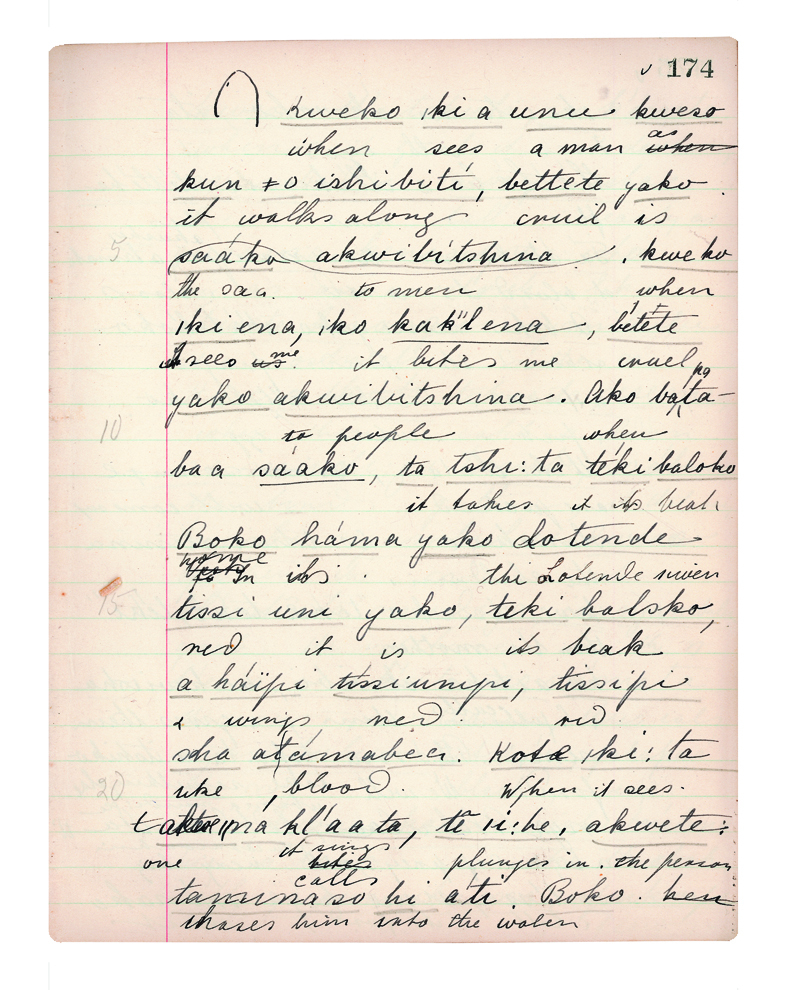 ✓ 174
∩ kweko |ki a unu kweso
when sees a man as when
kun ǂo ishibiti, bettete yako
it walks along cruil is
saáko akwibitshina. kweko
5
the saa. to men when
|ki ena, |ko kak"lena, betete
it sees us me. it bites me cruel
yako akwibitshina. Ako bapata-
10
to people when
baa sáako, ta tshi:ta téki baloko
it takes it its beak
Boko háma yako Lotende
home its. the Lotende river
15
tissi uni yako, teki balsko,
red it is its beak
a háïpi tissiunipi, tissipi
& wings red. red.
sha atámabea. Kota |ki: ta
20
like blood. When it sees.
má kl'aa ta, te :he, akwete:
one it sings bites calls plunges in. the person
tamunaso hi áti. Boko.
chases him into the water